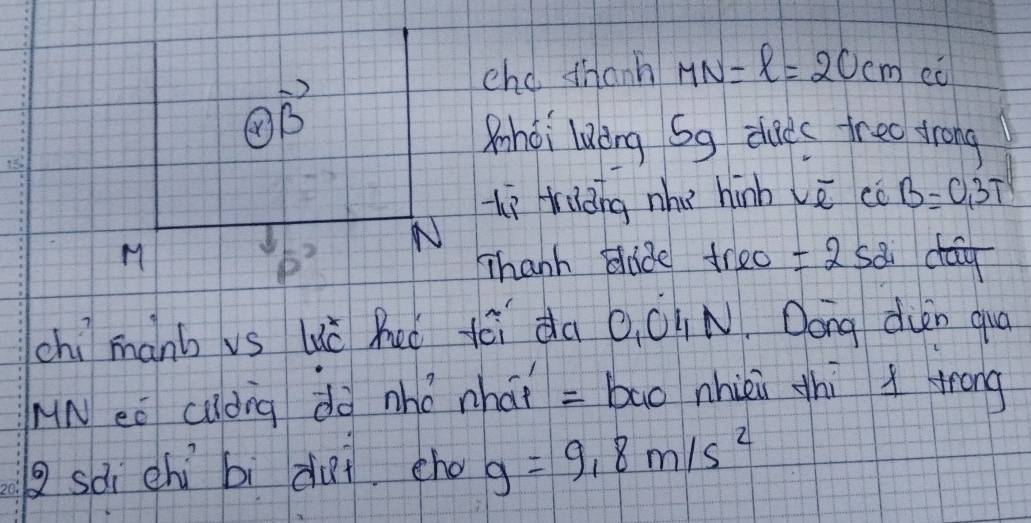 B
cho thanh MN = l = 20cm có
khối lượng 5g được treo trong
từ trường như hình vẽ có B = 0,3T
M
N
P
Thanh được treo = 2 sợi dây
chỉ mảnh vs lực kéo tối đa 0,04N. Dòng điện qua
MN có cường độ nhỏ nhất = bao nhiêu thì 1 trong
2 sợi chỉ bị đứt. cho g = 9,8 m/s²